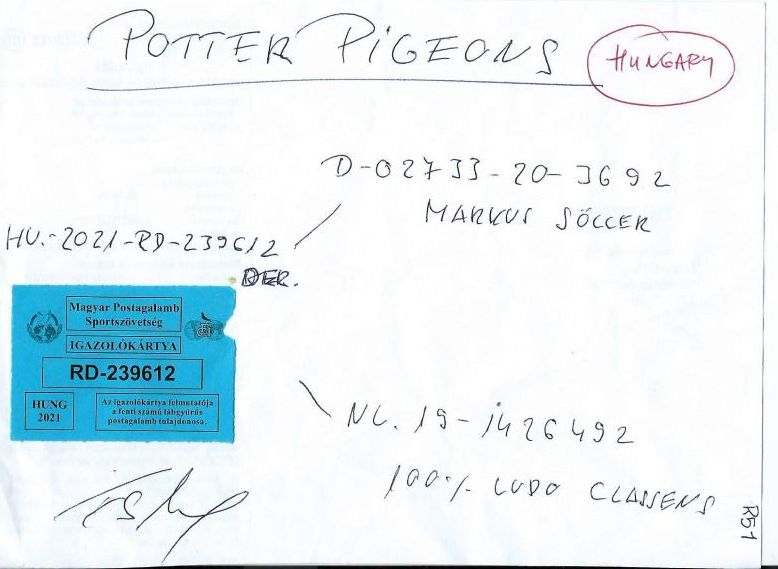 POTTER PIGEONS
HUNGARY
D-02733-20-3692
MARKUS SÖLLER
HU.-2021-RD-239612
DER.
Magyar Postagalamb
Sportszövetség
IGAZOLÓKÁRTYA
RD-239612
HUNG
2021
Az igazolókártya felmutatója
a fenti számú lábgyűrűs
postagalamb tulajdonosa.
NL. 19-1426492
100% LUDO CLASSENS
R51